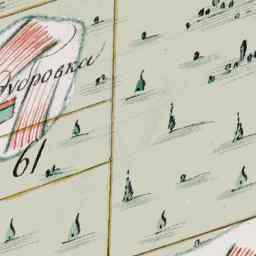 Дубровка
61